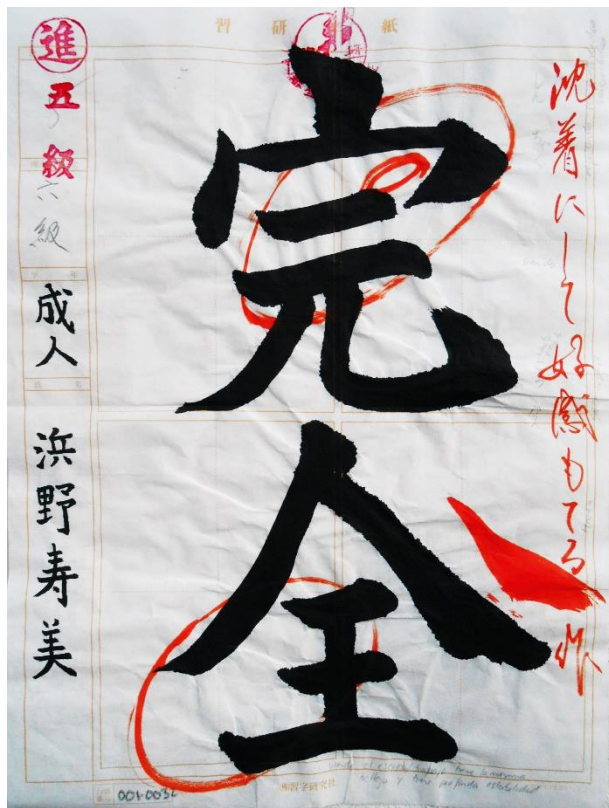 習研紙
完全
沈着にして好感もてる作
進
五級
六級
成人
浜野寿美
001-0032